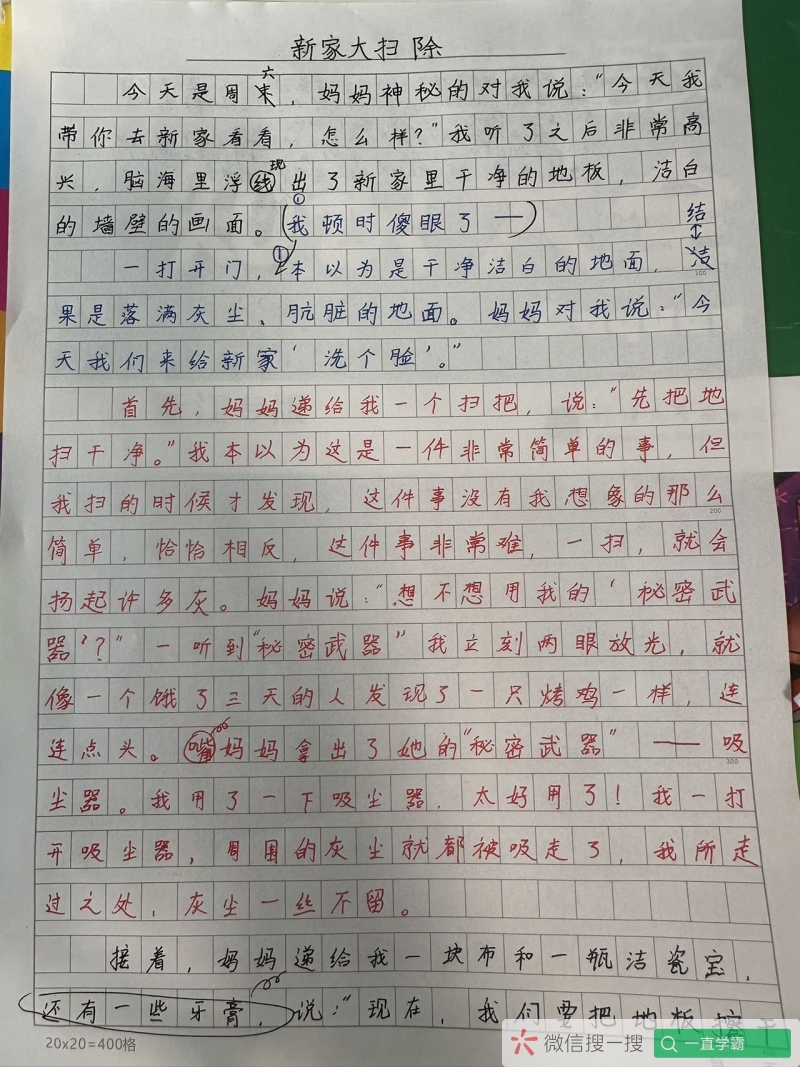 新家大扫除
今天是周末六，妈妈神秘的对我说：“今天我
带你去新家看看，怎么样？”我听了之后非常高
兴，脑海里浮线现出了新家里干净的地板，洁白
的墙壁的画面。（我顿时傻眼了——）
一打开门，①本以为是干净洁白的地面，洁结
果是落满灰尘、肮脏的地面。妈妈对我说：“今
天我们来给新家‘洗个脸’。”
首先，妈妈递给我一个扫把，说：“先把地
扫干净。”我本以为这是一件非常简单的事，但
我扫的时候才发现，这件事没有我想象的那么
简单，恰恰相反，这件事非常难，一扫，就会
扬起许多灰。妈妈说：“想不想用我的‘秘密武
器’？”一听到“秘密武器”我立刻两眼放光，就
像一个饿了三天的人发现了一只烤鸡一样，连
连点头。嘴妈妈拿出了她的“秘密武器”——吸
尘器。我用了一下吸尘器，太好用了！我一打
开吸尘器，周围的灰尘就都被吸走了，我所走
过之处，灰尘一丝不留。
接着，妈妈递给我一块布和一瓶洁瓷宝，
还有一些牙膏，说：“现在，我们要把地板擦干
20x20=400格
微信搜一搜
一直学霸
100
200
300